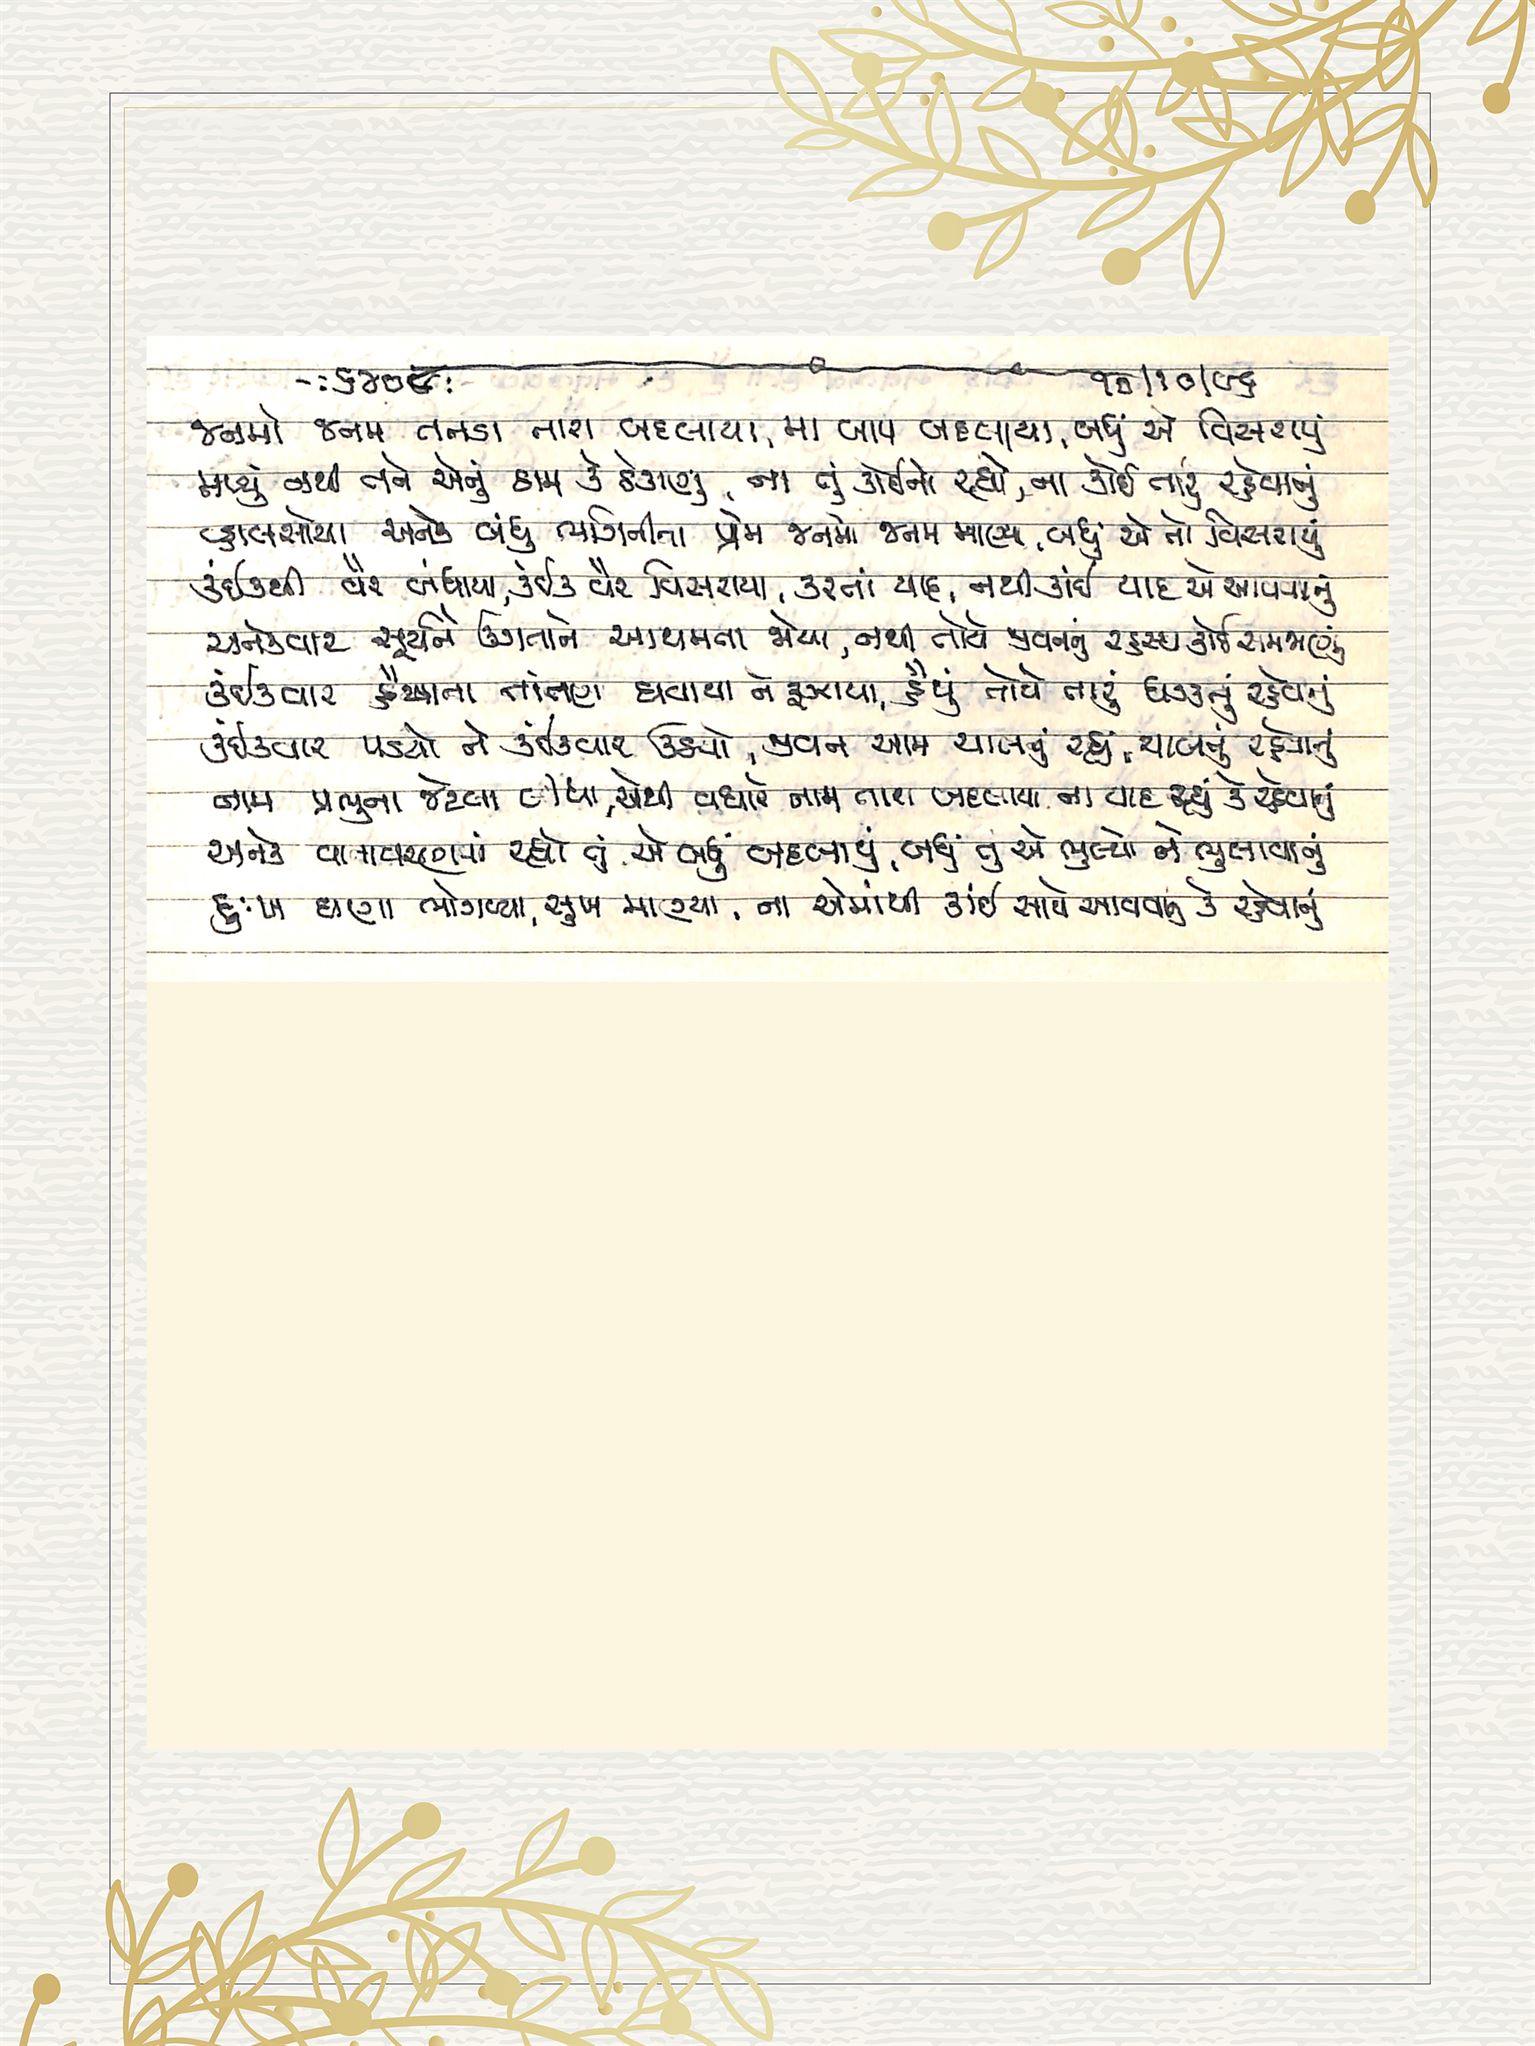 -:૬૪૦૯:
૧૩/૧૦/૯૬
જનમો જનમ તનડા તારા બદલાયા, મા બાપ બદલાયા, બધું એ વિસરાયું
મળ્યું નથી તને એનું ઠામ કે ઠેકાણું, ના તું કોઈનો રહ્યો, ના કોઈ તારું રહેવાનું
વ્હાલસોયા અનેક બંધુ ભગિનીના પ્રેમ જનમો જનમ માણ્યા, બધું એ તો વિસરાયું
કંઈકથી વૈર બંધાયા, કંઈક વૈર વિસરાયા, કરતાં યાદ, નથી કાંઈ યાદ એ આવવાનું
અનેકવાર સૂર્યને ઉગતાને આથમતા જોયા, નથી તોયે જીવનનું રહસ્ય કોઈ સમજાણું
કંઈકવાર હૈયાના તાંતણા ઘવાયા ને રૂઝાયા, હૈયું તોયે તારું ધડકતું રહેવાનું
કંઈકવાર પડયો ને કંઈકવાર ઉઠયો, જીવન આમ ચાલતું રહ્યું, ચાલતું રહેવાનું
નામ પ્રભુના જેટલા લીધા, એથી વધારે નામ તારા બદલાયા ના યાદ રહ્યું કે રહેવાનું
અનેક વાતાવરણમાં રહ્યો તું એ બધું બદલાયું, બધું તું એ ભુલ્યો ને ભુલાવાનું
દુઃખ ઘણા ભોગવ્યા, સુખ માણ્યા, ના એમાંથી કાંઈ સાથે આવવાનું કે રહેવાનું